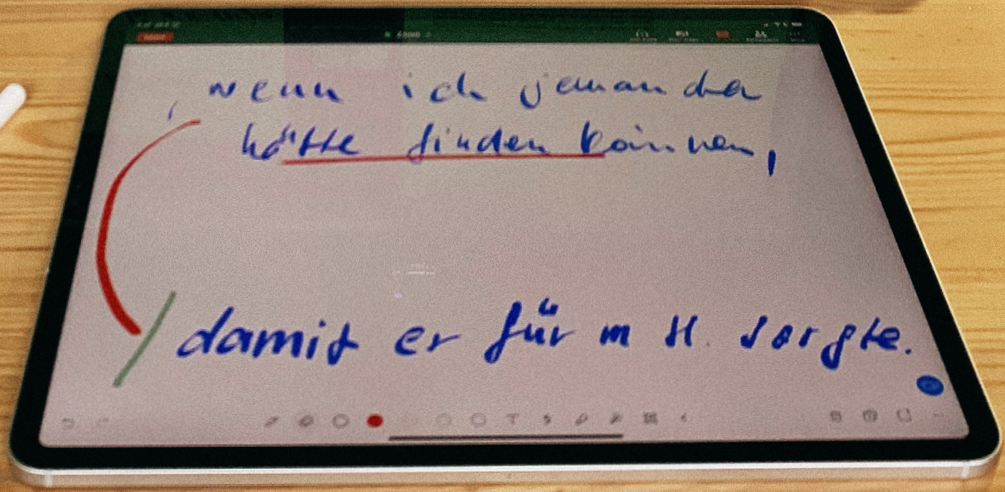 , wenn ich jemanden
hätte finden können,
damit er für m H. sorgte.